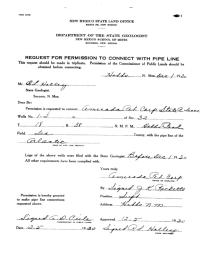 NEW MEXICO STATE LAND OFFICE
DEPARTMENT OF THE STATE GEOLOGIST
NEW MEXICO SCHOOL OF MINES
SOCORRO, NEW MEXICO
REQUEST FOR PERMISSION TO CONNECT WITH PIPE LINE
This request should be made in triplicate. Permission of the Commissioner of Public Lands should be
obtained before connecting.
Hobbs N. Mex Dec 1 1930
Mr.
State Geologist,
Socorro, N. Mex.
Dear Sir:
Permission is requested to connect Amerada Pet Corp State
Wells No. 1-2 of Sec. 32
T 18 R 38 N. M. P. M. Hobbs Pool
Field Lea County, with the pipe line of the
Atlantic
Logs of the above wells were filed with the State Geologist Before Dec 1 1930
All other requirements have been complied with.
Yours truly,
Amerada Pet Corp
By Signed
Permission is hereby granted
to make pipe line connections
requested above.
Position Supt
Address Hobbs N M
Signed
Approved 2-5 1930
Date 2-5 1930
Signed